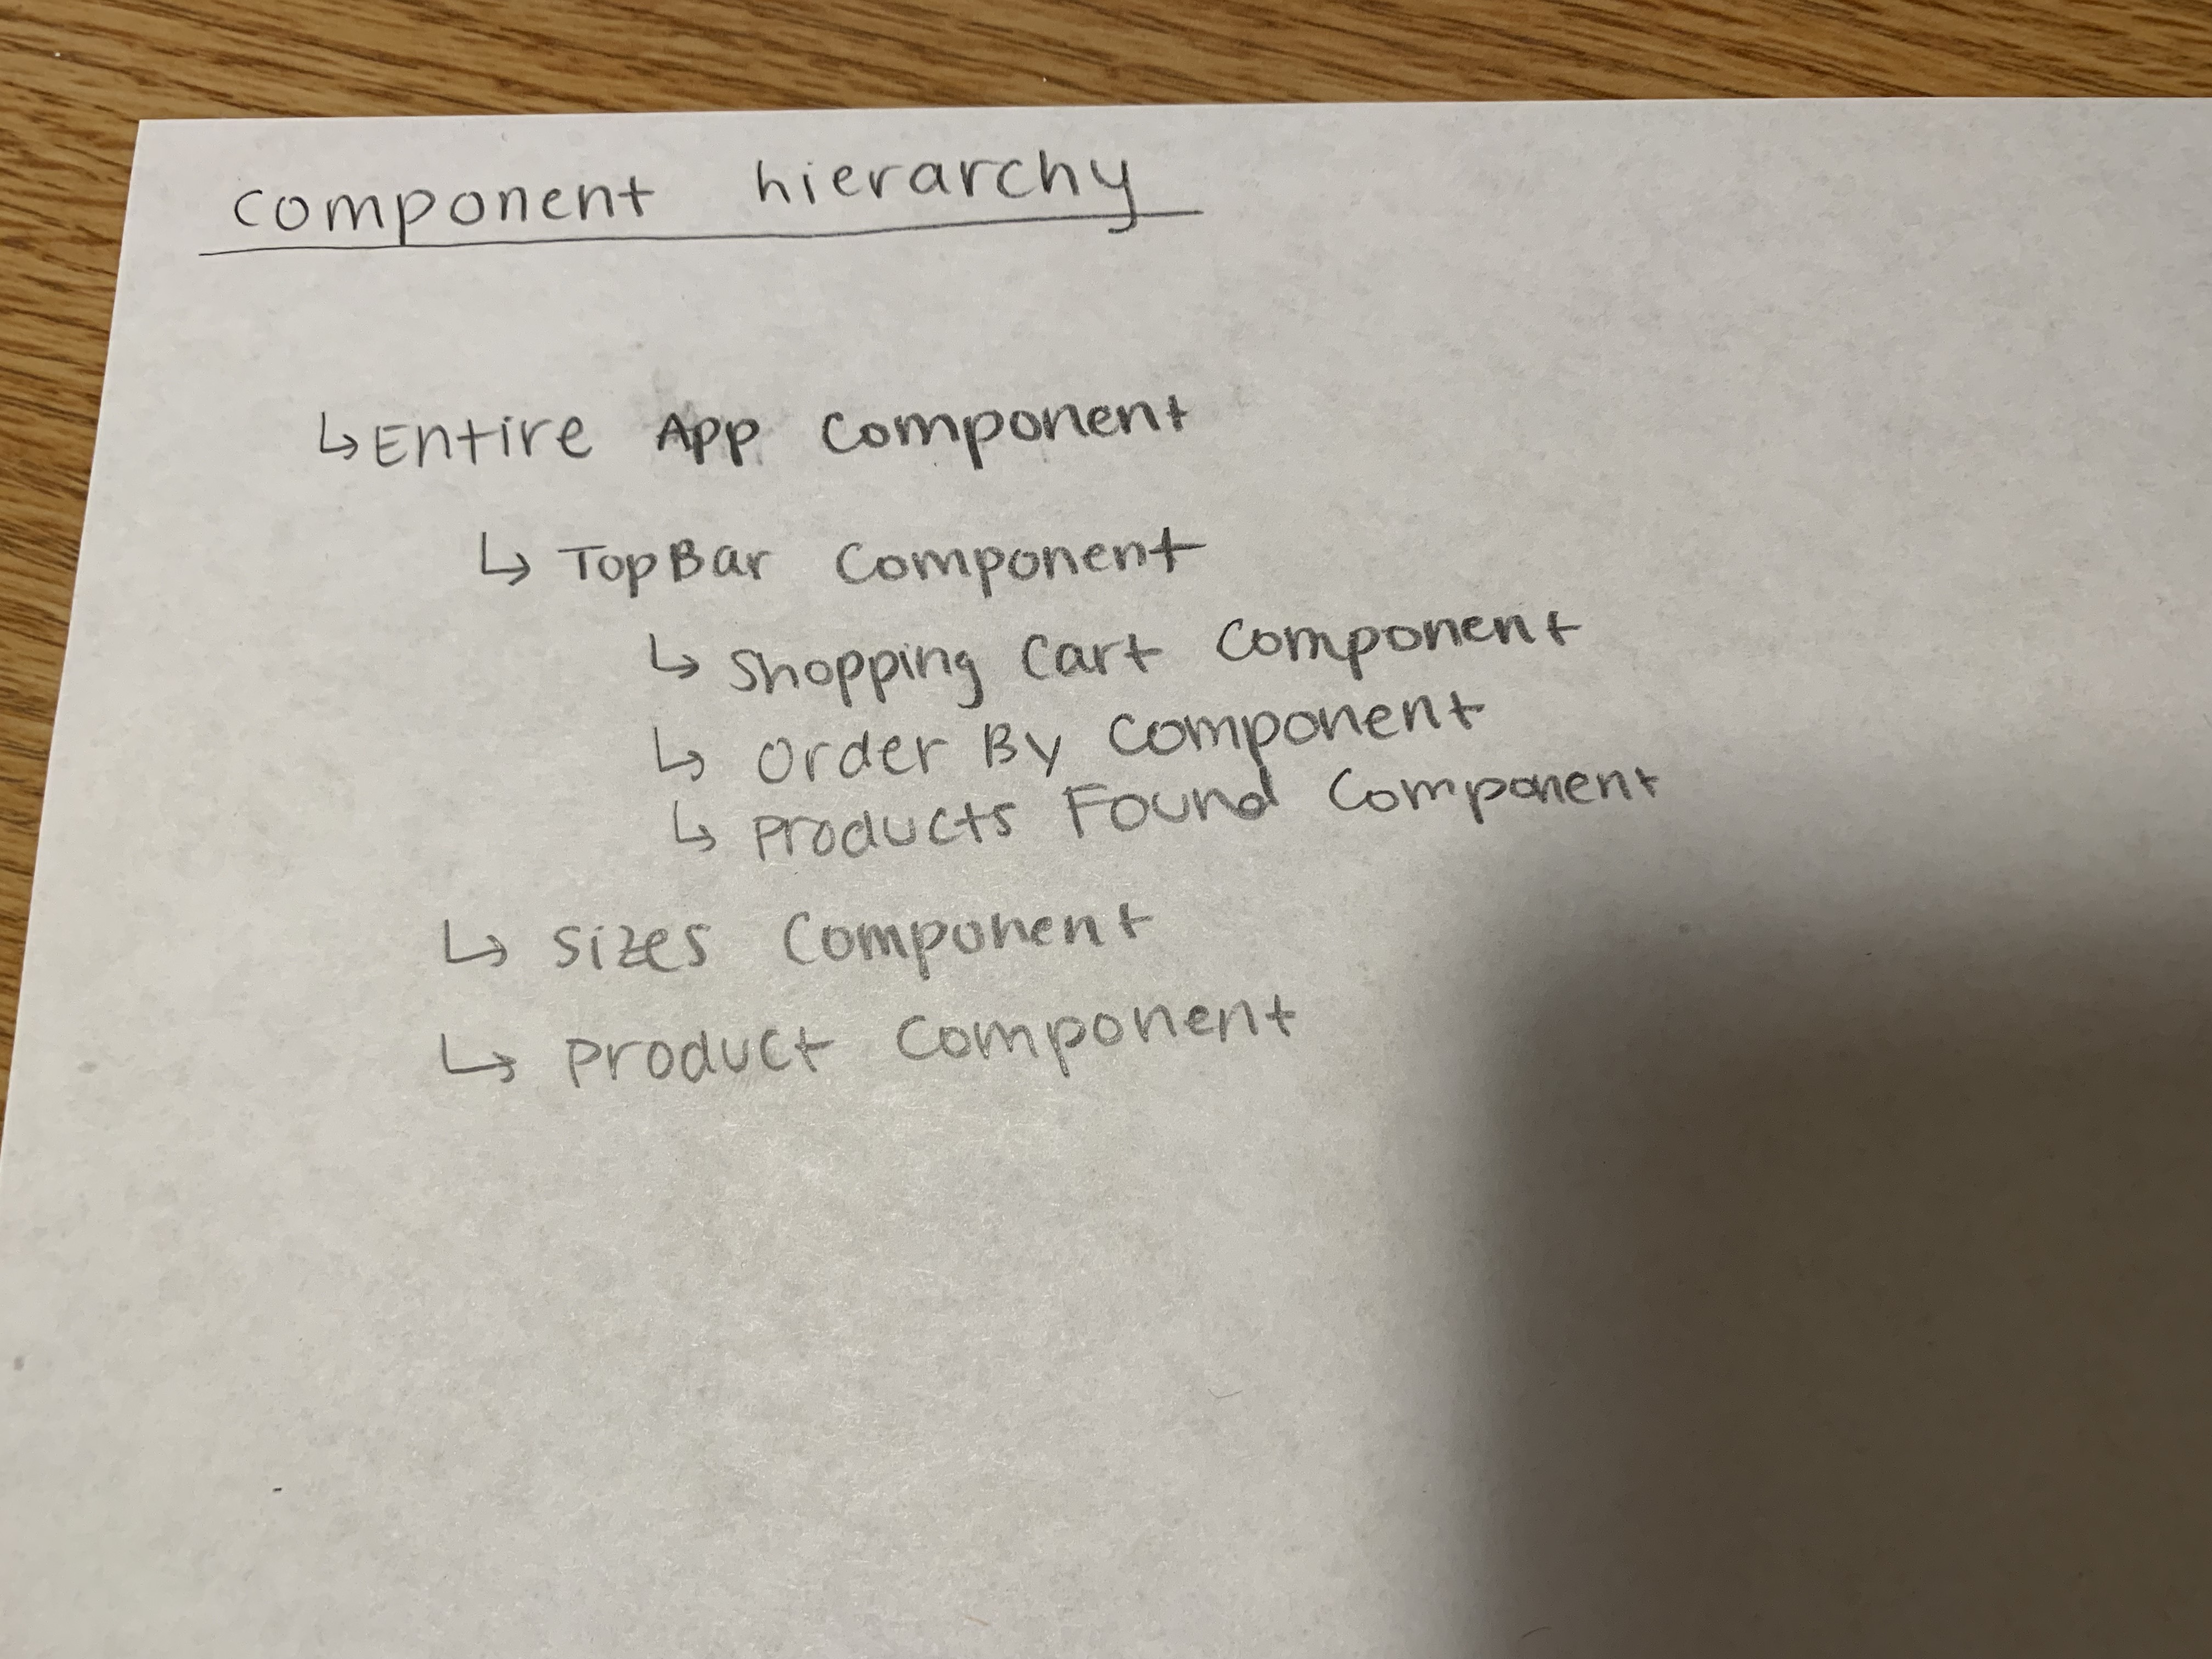 component hierarchy
↳ Entire App Component
↳ TopBar Component
↳ Shopping Cart Component
↳ Order By Component
↳ Products Found Component
↳ Sizes Component
↳ Product Component